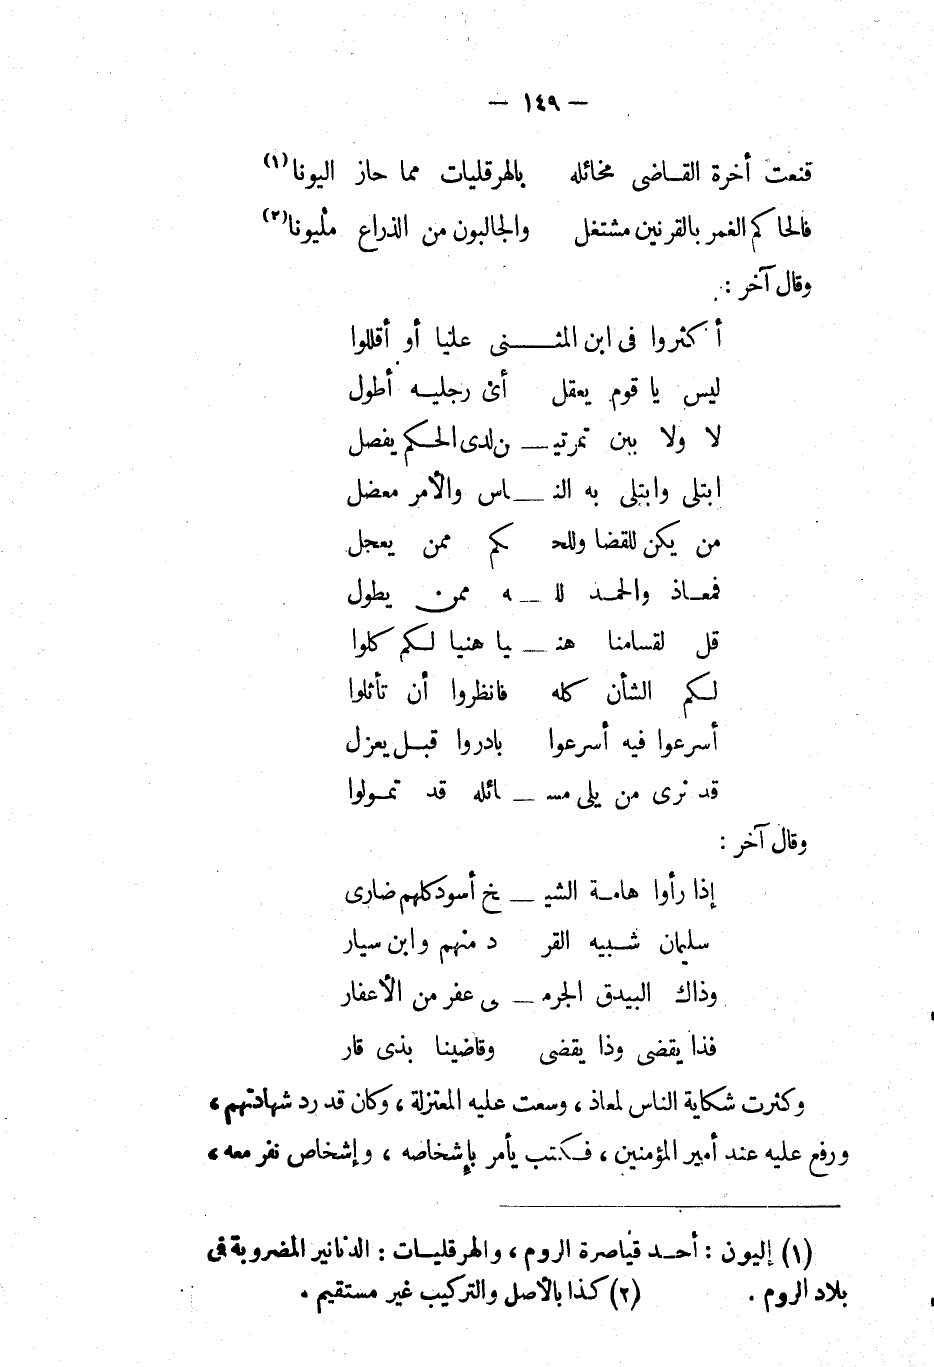 — ١٤٩ —
قنعت أخرة القاضى مخائله بالهرقليات مما حاز اليونا(١)
فالحاكم الغمر بالقرنين مشتغل والجالبون من الذراع مليونا(٢)
وقال آخر :
أكثروا فى ابن المثـــنى عليا أو أقللوا
ليس يا قوم يعقل أى رجليه أطول
لا ولا بين تمرتيــ ن لدى الحكم يفصل
ابتلى وابتلى به النــ اس والأمر معضل
من يكن للقضا وللحكم ممن يعجل
فمعاذ والحمد للــه ممن يطول
قل لقسامنا هنــ يا هنيا لكم كلوا
لكم الشأن كله فانظروا أن تأثلوا
أسرعوا فيه أسرعوا بادروا قبل يعزل
قد نرى من يلى مســ ائله قد تمولوا
وقال آخر :
إذا رأوا هامة الشيــ خ أسود كلهم ضارى
سليمان شبيه القر د منهم وابن سيار
وذاك البيدق الجرمــ ى عفر من الأعفار
فذا يقضى وذا يقضى وقاضينا بذى قار
وكثرت شكاية الناس لمعاذ ، وسعت عليه المعتزلة ، وكان قد رد شهادتهم ،
ورفع عليه عند أمير المؤمنين ، فكتب يأمر بإشخاصه ، وإشخاص نفر معه ،
(١) إليون : أحد قياصرة الروم ، والهرقليات : الدنانير المضروبة فى
بلاد الروم . (٢) كذا بالأصل والتركيب غير مستقيم .